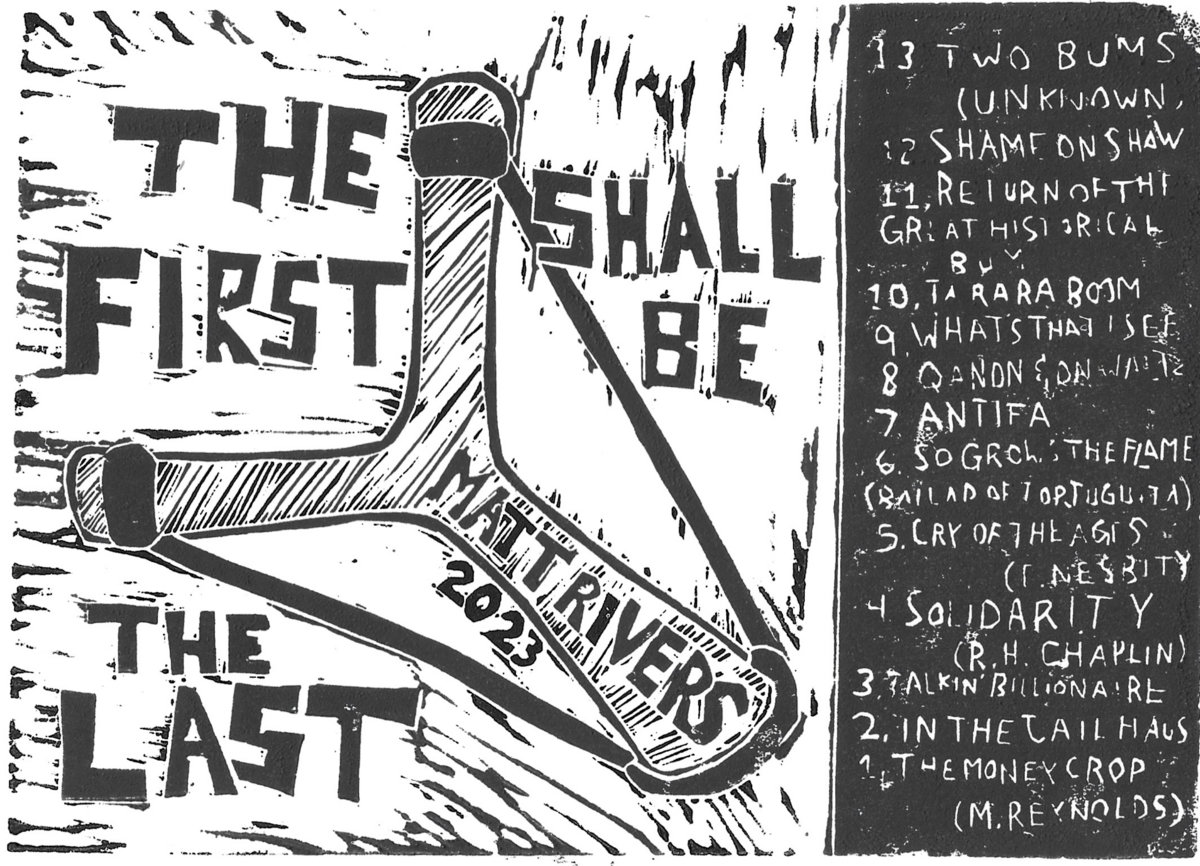 THE
FIRST
SHALL
BE
THE
LAST
MATT RIVERS
2023
13 TWO BUMS
(UNKNOWN,
12 SHAME ON SHAW
11, RETURN OF THE
GREAT HISTORICAL
10, TA RARA BOOM
9 WHATS THAT I SEE
8 QANON & ON WALTZ
7 ANTIFA
6. SO GROWS THE FLAME
(BALLAD OF TORTUGUITA)
5. CRY OF THE AGES
(E. NESBITY
4 SOLIDARITY
(R.H. CHAPLIN)
3, TALKIN' BILLIONAIRE
2, IN THE JAIL HAUS
1, THE MONEY CROP
(M. REYNOLDS)